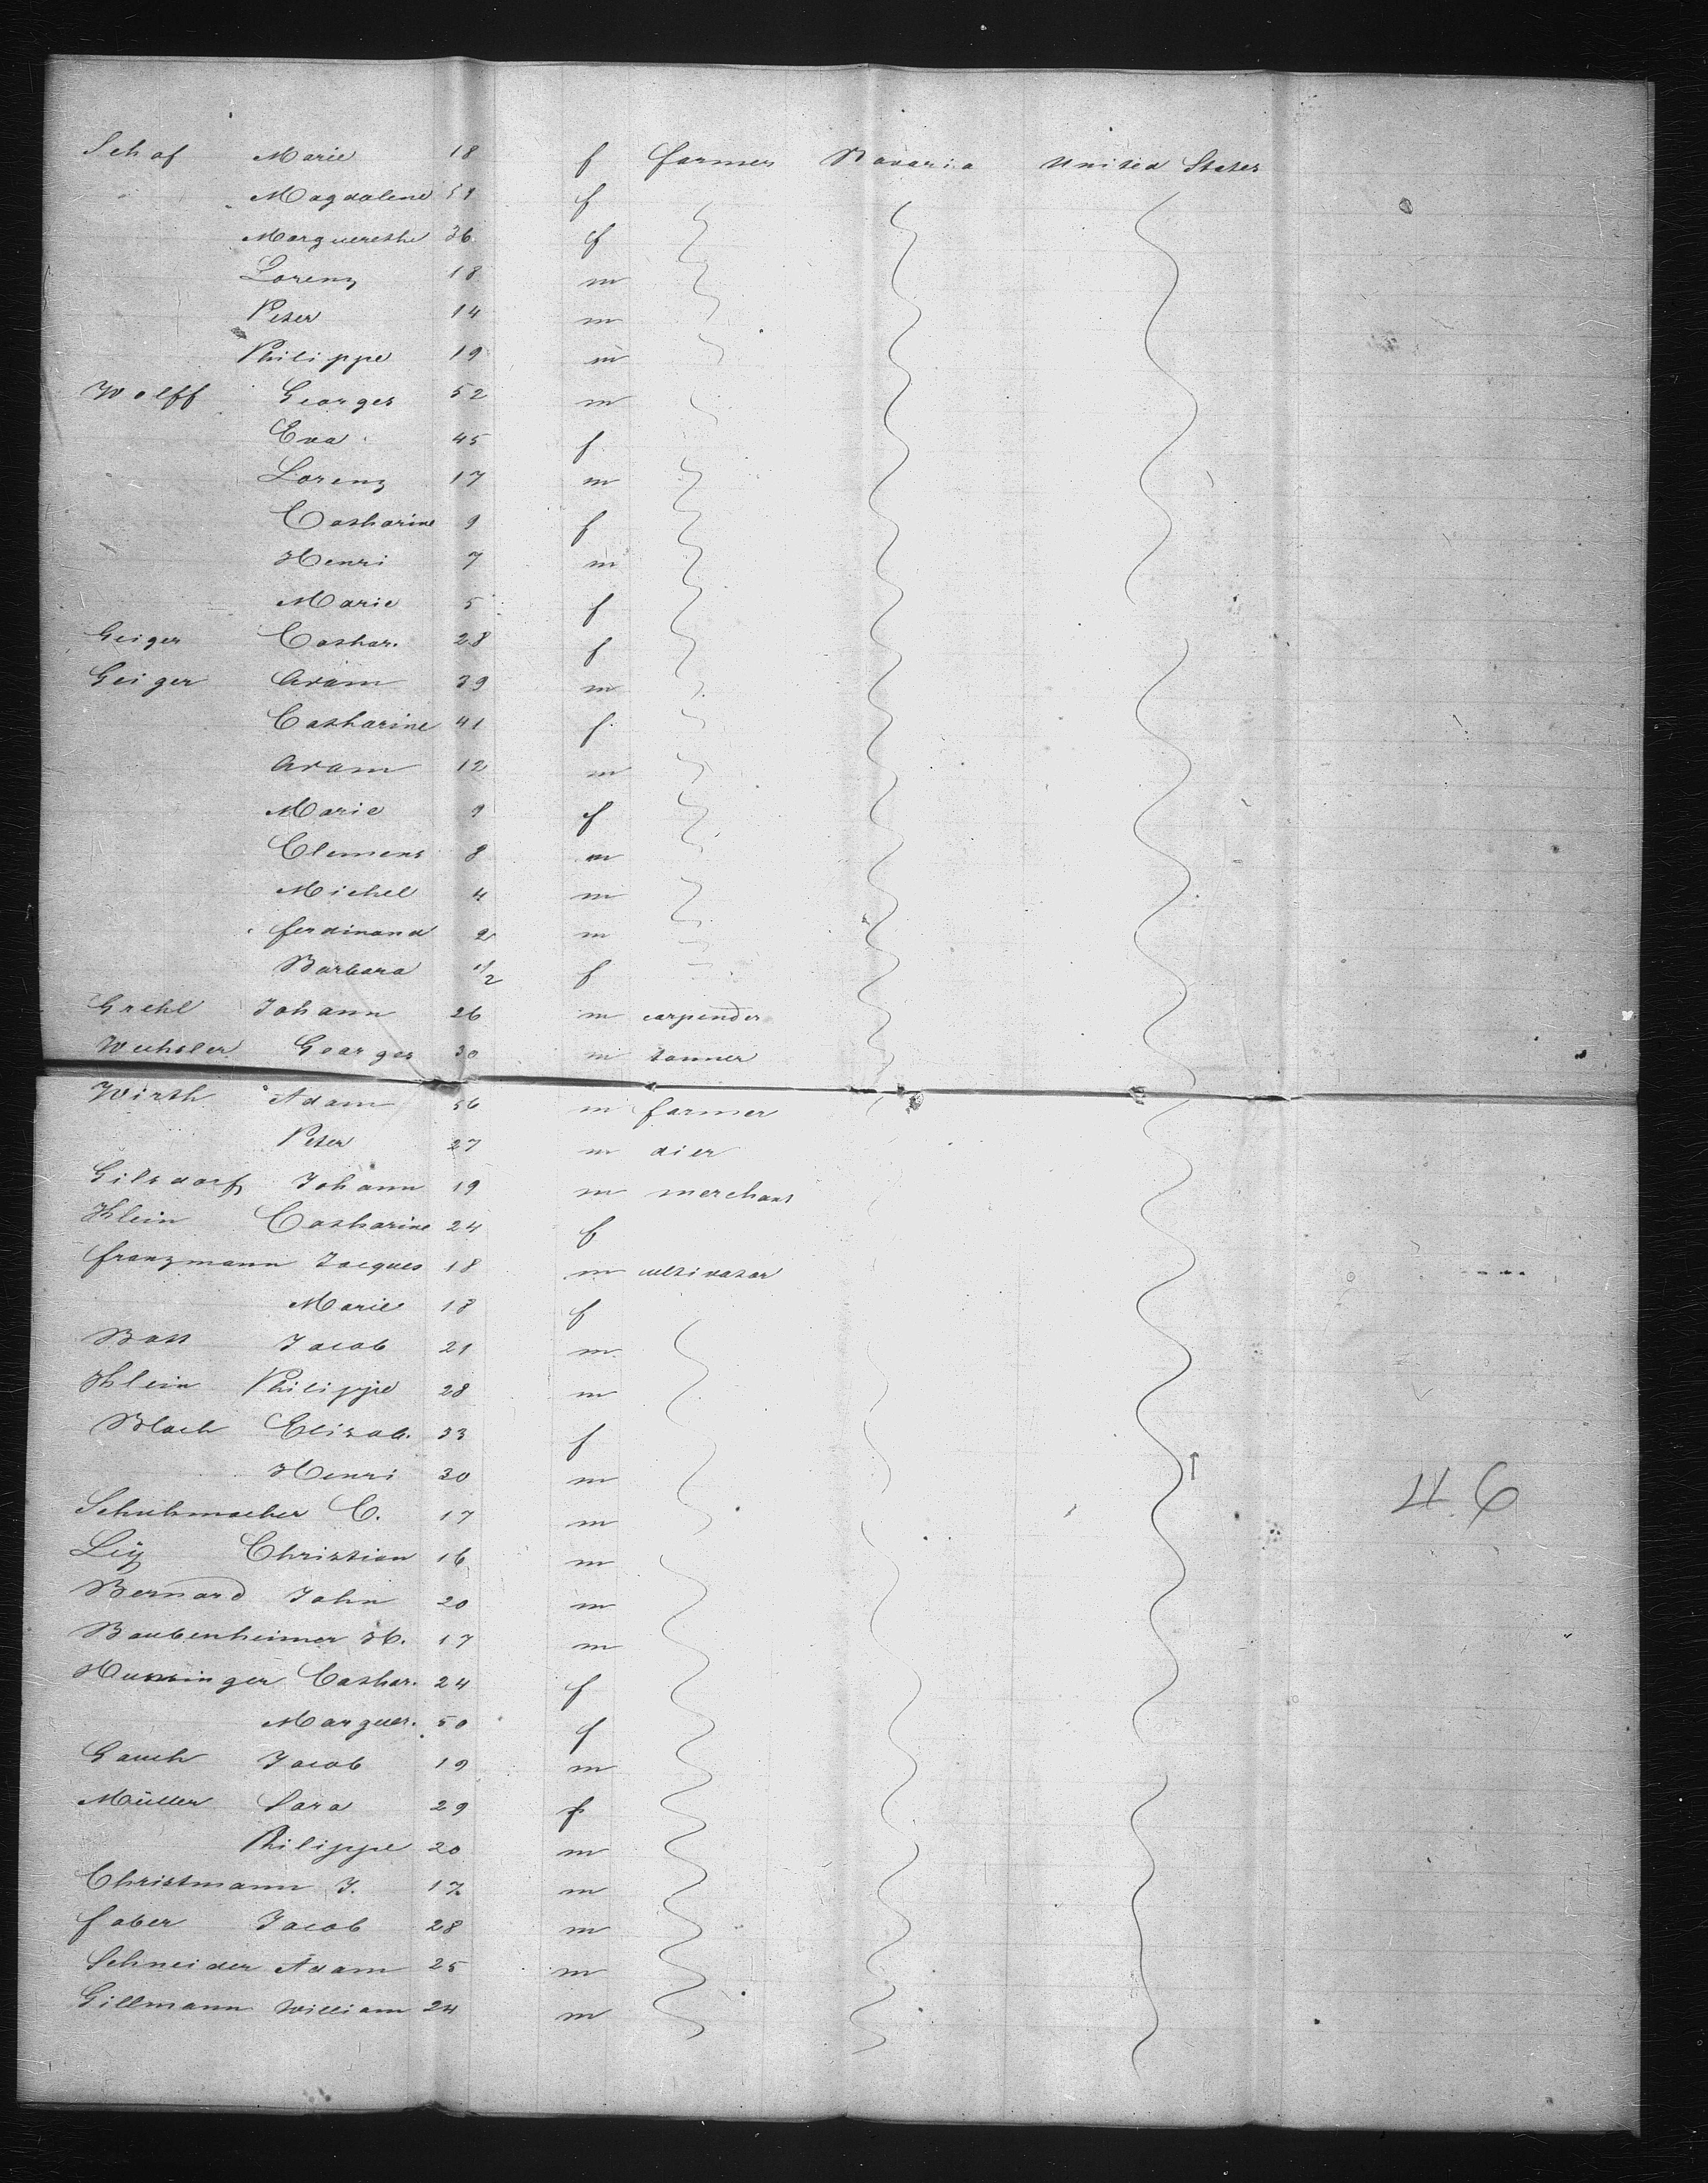 Schaf Marie 18 f farmer Bavaria United States
Magdalene 59 f
Marguerethe 36 f
Lorenz 18 m
Peter 14 m
Philippe 19 m
Wolff Georges 52 m
Eva 45 f
Lorenz 17 m
Catharine 9 f
Henri 7 m
Marie 5 f
Geiger Cathar. 28 f
Geiger Adam 39 m
Catharine 41 f
Adam 12 m
Marie 9 f
Clemens 8 m
Michel 4 m
ferdinand 2 m
Barbara 1/2 f
Grehl Johann 26 m carpender
Wechsler Georges 30 m tanner
Wirth Adam 56 m farmer
Peter 27 m dier
Gilsdorf Johann 19 m merchant
Klein Catharine 24 f
franzmann Jacques 18 m cultivator
Marie 18 f
Bast Jacob 21 m
Klein Philippe 28 m
Bloch Elisab. 33 f
Henri 30 m
Schuhmacher C. 17 m
Ley Christian 16 m
Bernard John 20 m
Baubenheimer H. 17 m
Hunsinger Cathar. 24 f
Marguer. 50 f
Gauch Jacob 19 m
Müller Sara 29 f
Philippe 20 m
Christmann J. 17 m
faber Jacob 28 m
Schneider Adam 25 m
Gillmann William 24 m
46